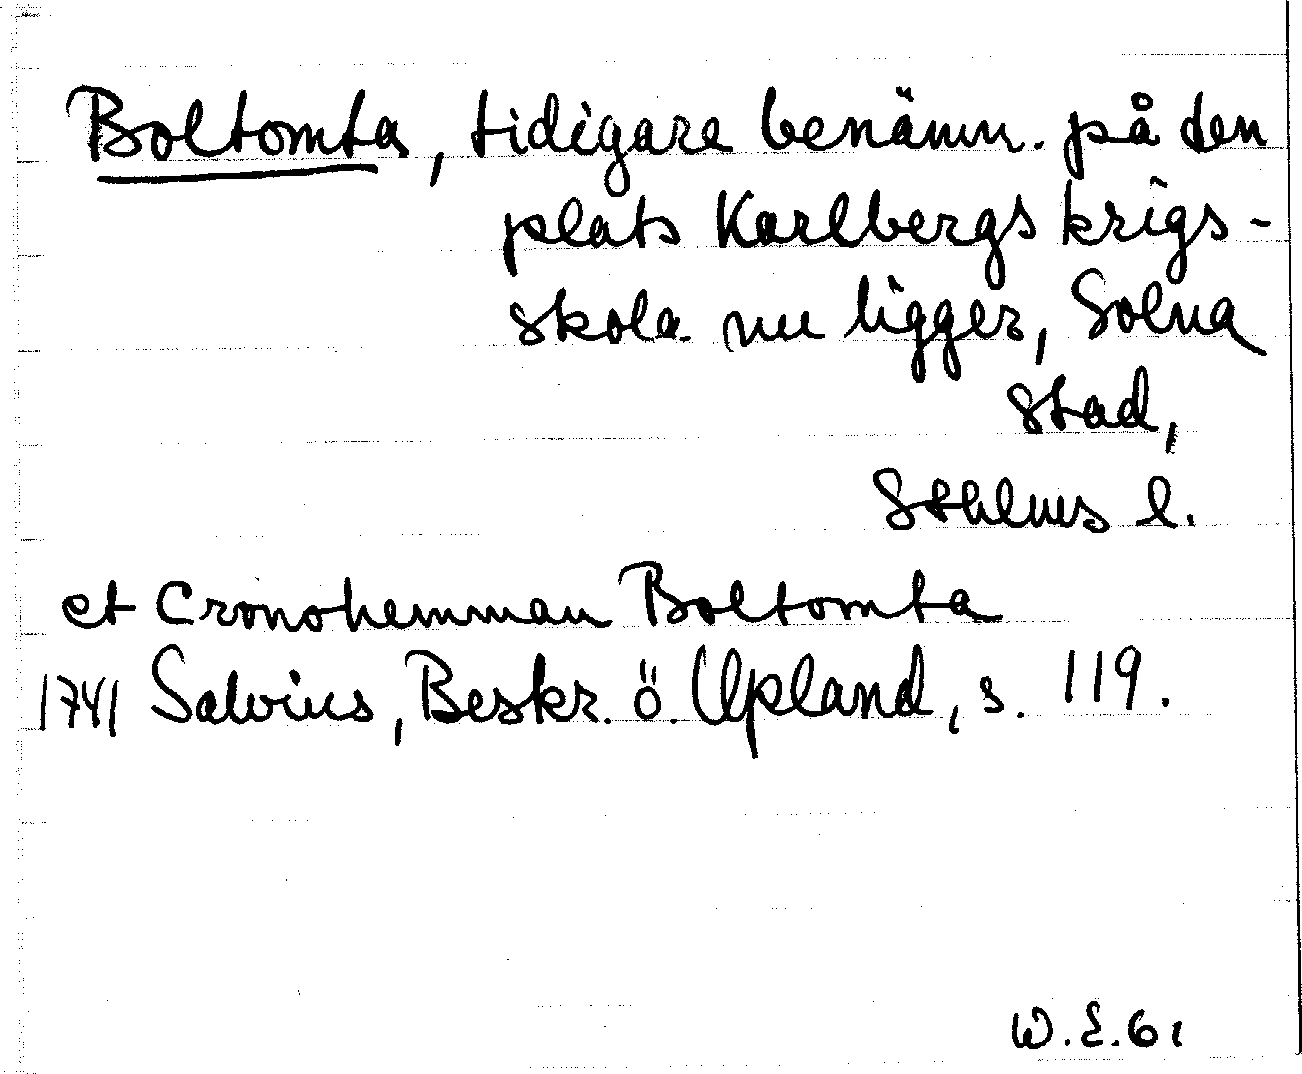 Boltomta, tidigare benämn. på den
plats Karlbergs krigs-
skola nu ligger, Solna
stad,
Sthlms l.
et Cronohemman Boltomta
1741 Salvius, Beskr. ö. Upland, s. 119.
W.E.61